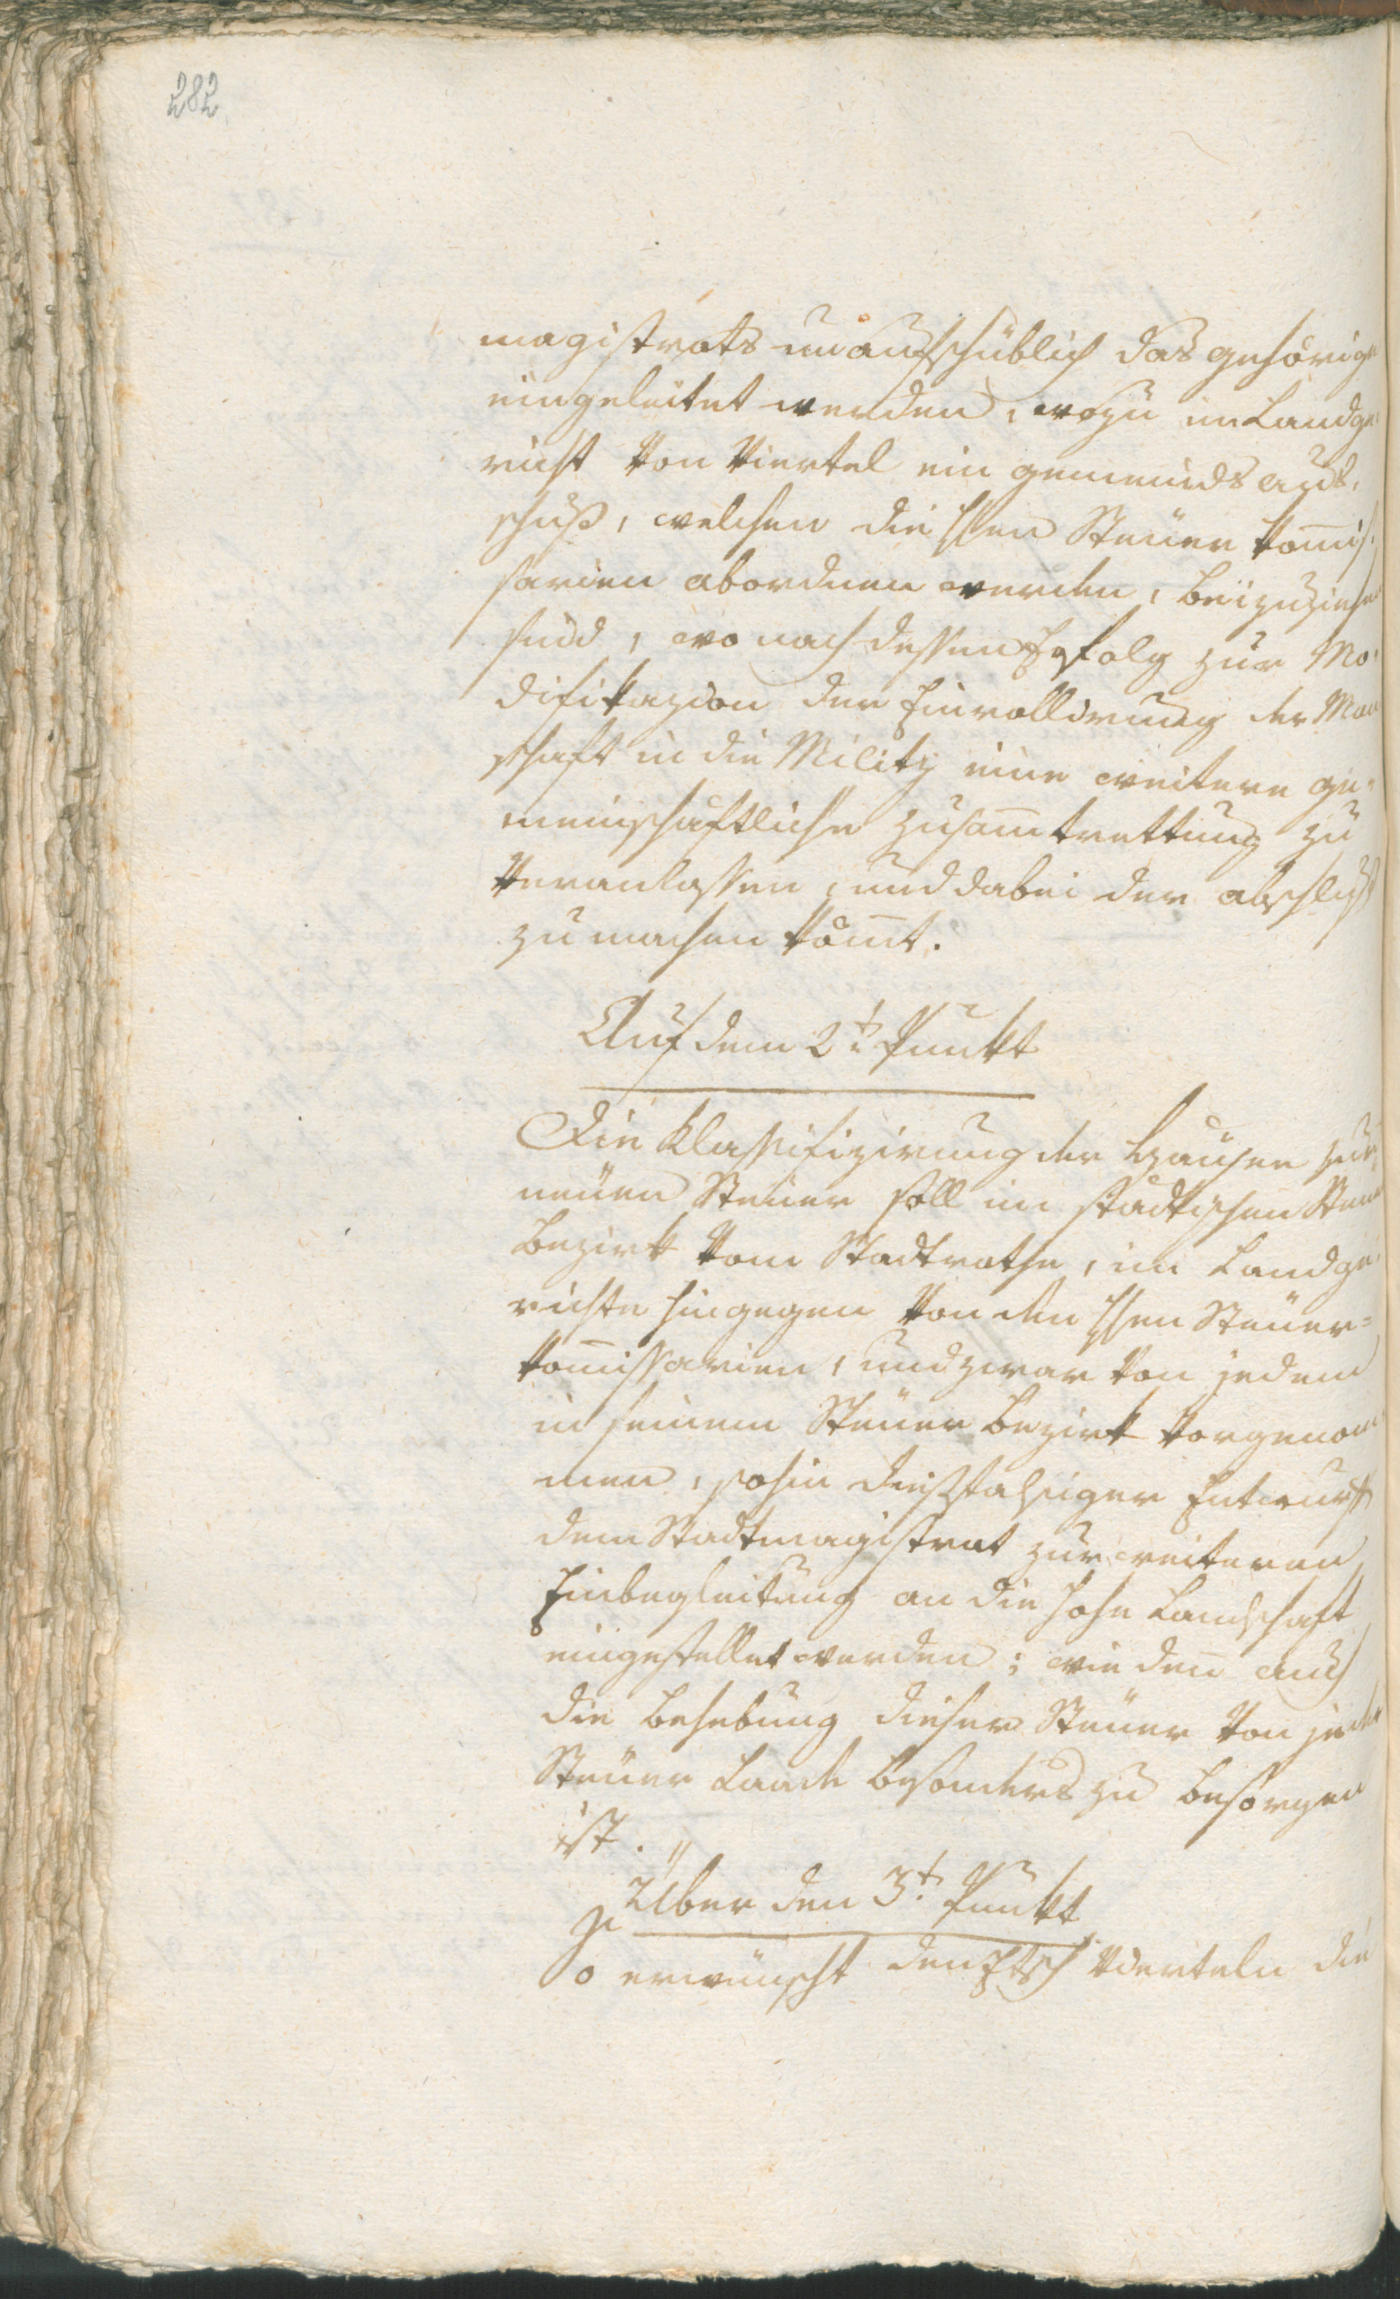 282
magistrats unaufschüblich das gehörige
eingeleitet werden, wozu im Landge¬
richt von Viertel ein gemeinds aus¬
schuß, welchen die Hhen Steuer Kom̅is¬
sarien abordnen werden, beizuziehen
sind, wo nach dessen Erfolg zur Mo¬
difikazion der Einrollirung der Man
schaft in die Militz eine weitere ge¬
meinschaftliche zusam̅trettung zu
veranlassen, und dabei der abschluß
zu machen kom̅t.
Auf dem 2t. Punkt
Die Klassifizirung der Häuser zur
neuen Steuer soll im städtischen Steuer
bezirk vom Stadtrathe, im Landge¬
richte hingegen von den Hhen Steuer=
kom̅issarien, und zwar von jedem
in seinem Steuer bezirk vorgenom
men, sohin diesfahliger Entwurff
dem Stadtmagistrat zur weiteren
Einbegleitung an die hohe Landschaft
eingestellet werden; wie den̅ auch
die behebung dieser Steuer von jeder
Steuer Lande besonders zu besorgen
ist.
Über den 3t. Punkt
So erwünscht den Etsch Vierteln die